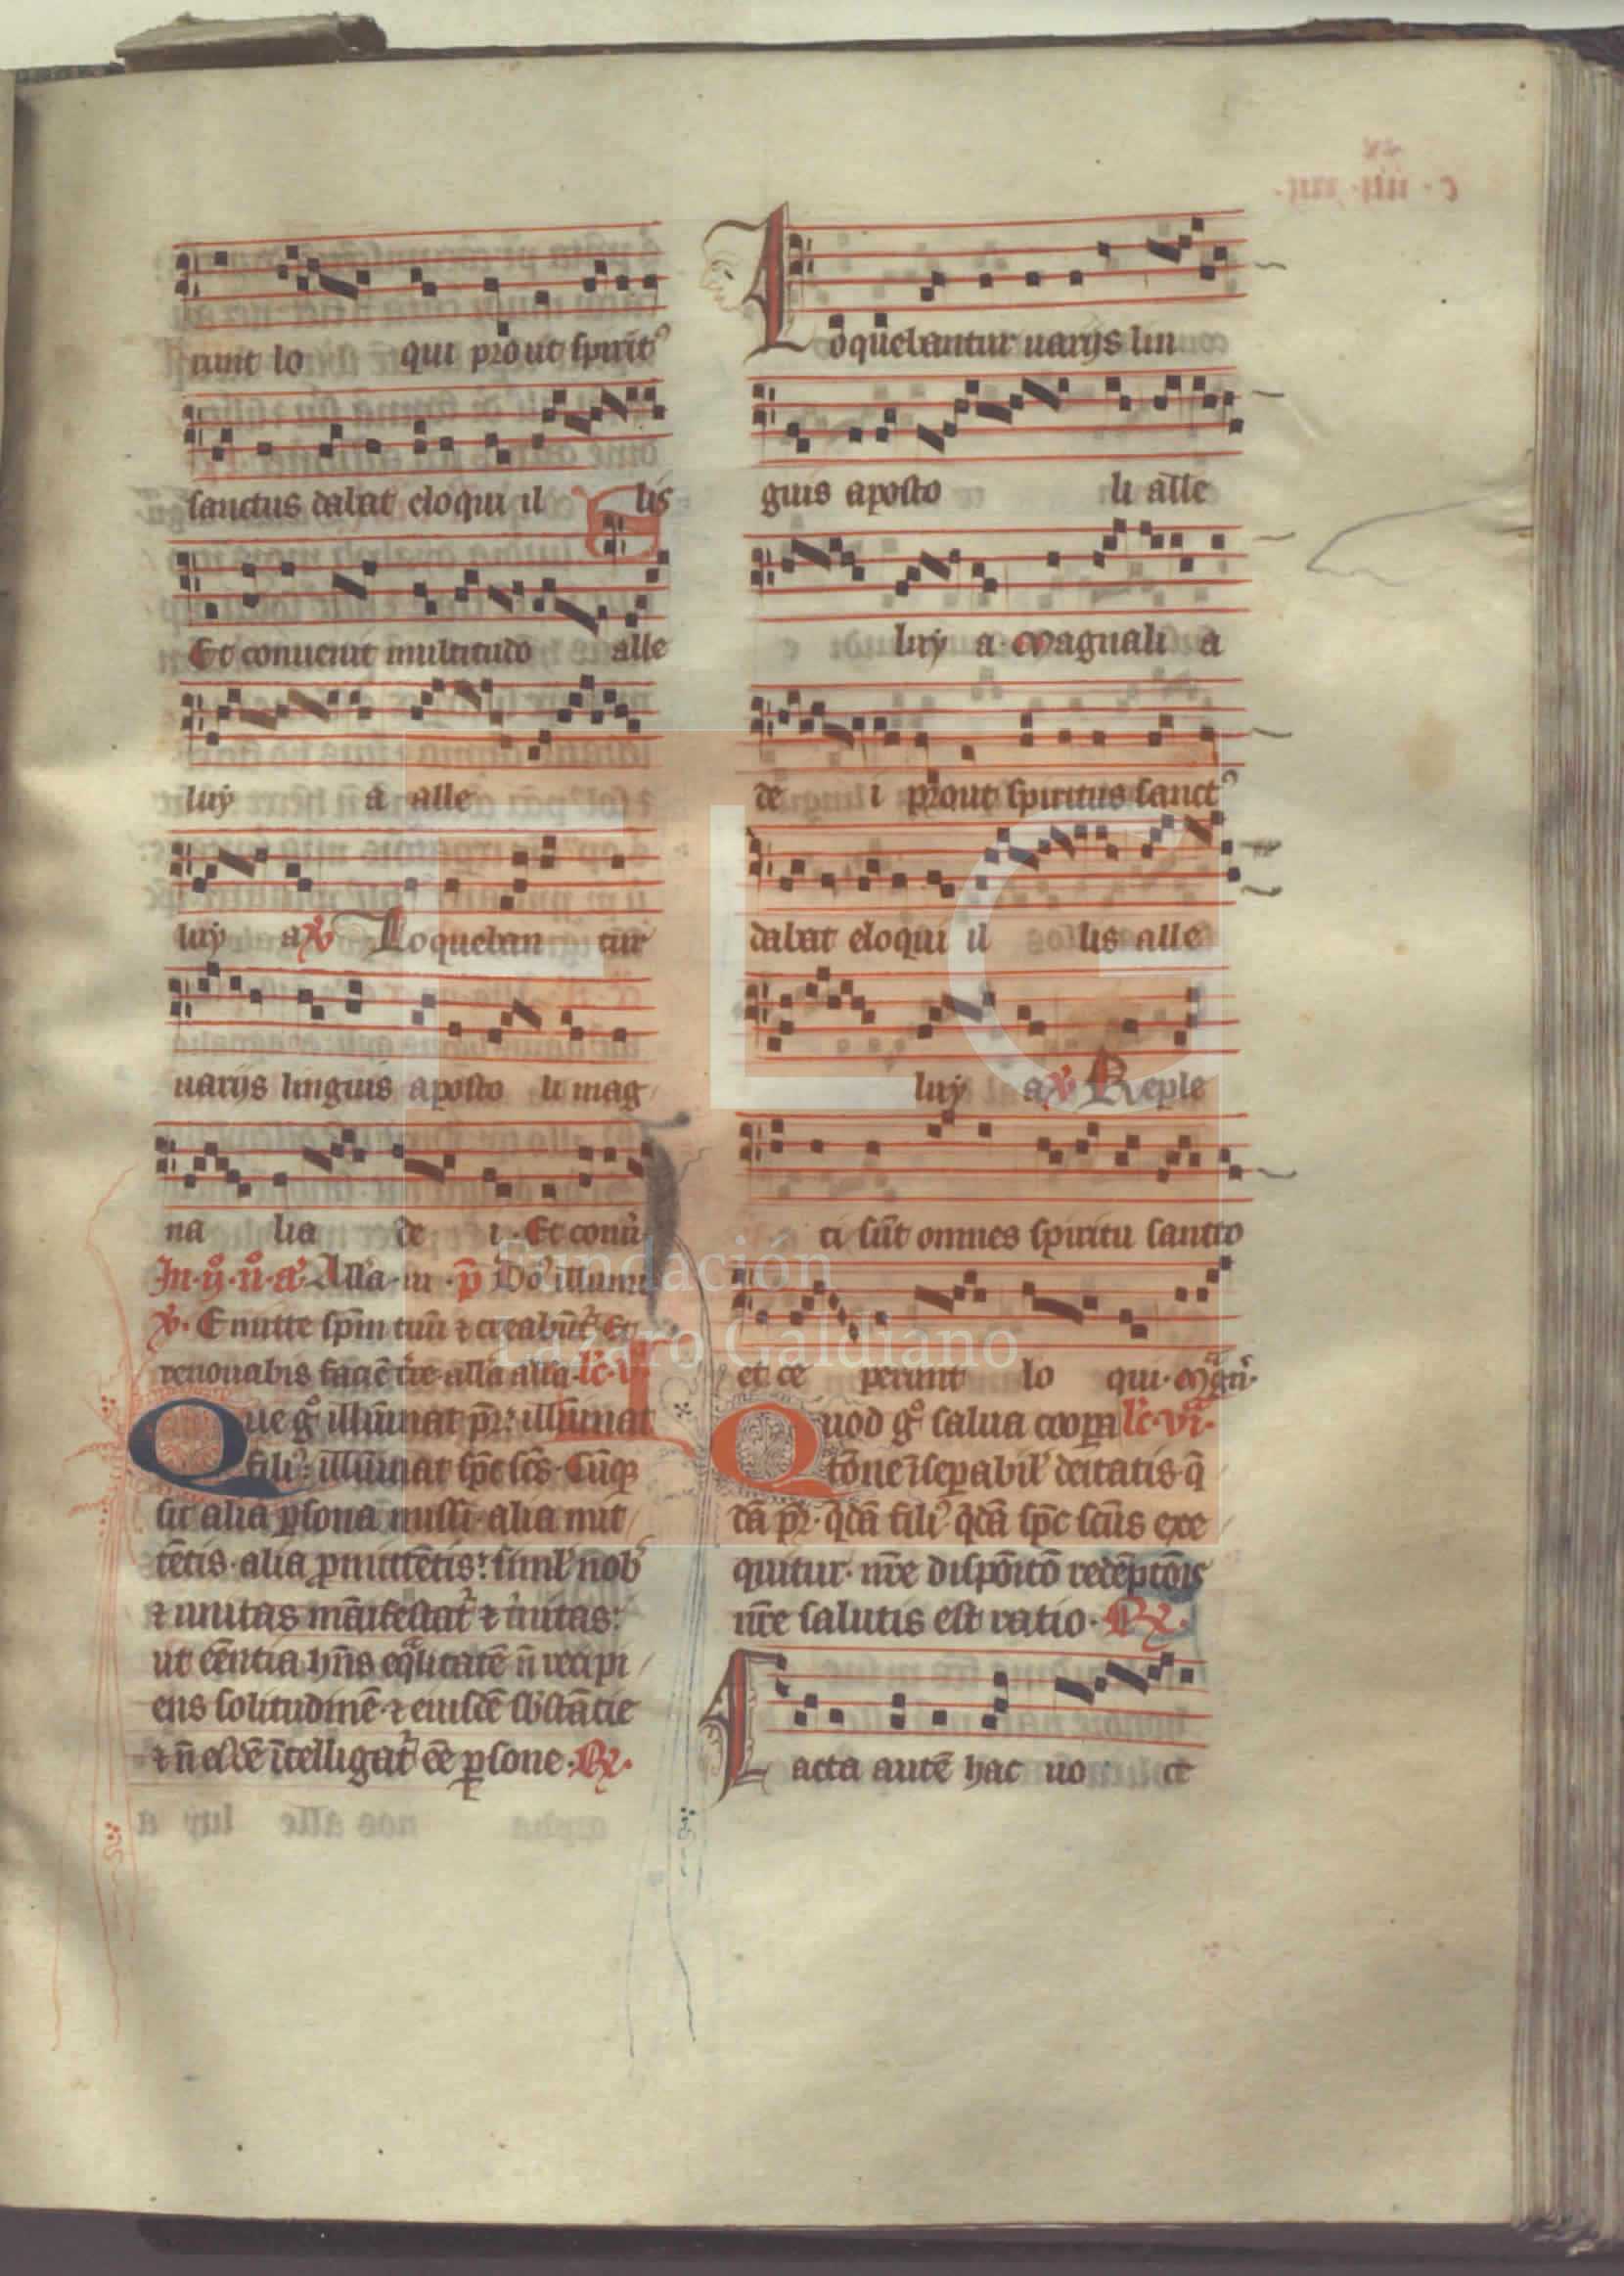 runt lo qui prout spirit⁹
sanctus dabat eloqui il lis
Et conuenit multitudo alle
luy a alle
luy a ℣ Loqueban tur
uarijs linguis aposto li mag
na lia de i · Et conũ
Alła · in · p̃ Do⁹ illumi
℣ · Emitte sp̃m tuũ ⁊ creabũt᷑ Et
renouabis faciẽ tr̃e alła alła · lc̃ · v ·
Que g° illũinat pr̃ : illũinat
fili⁹ : illũinat sp̃c sc̃s · Cũq
sit alia ꝑsona missi · alia mit
tẽtis · alia ꝓmittẽtis : siml' nob'
⁊ unitas mãifestat᷑ ⁊ t'nitas :
ut eẽntia hñs eq̃litatẽ ñ recipi
ens solitudinẽ · ⁊ eiusdẽ sb̃stãcie
⁊ ñ ĩtelligat᷑ eẽ ꝑsone · ℟ ·
Loquebantur uarijs lin
guis aposto li alle
luy a · Magnali a
de i prout spiritus sanct⁹
dabat eloqui il lis alle
luy a ℣ Reple
ti sũt omnes spiritu sancto
et ce perunt lo qui · Mag̃ñ ·
Quod g° salua coopa lc̃ · vi ·
tõne ĩseꝑabil' deitatis · q̃
dã pr̃ · q̃dã fili⁹ q̃dã sp̃c sc̃us exe
quitur · nr̃e dispõitõ redẽptõis
nr̃e salutis est ratio · ℟ ·
Facta autẽ hac uo ce
Fundación
Lázaro Galdiano